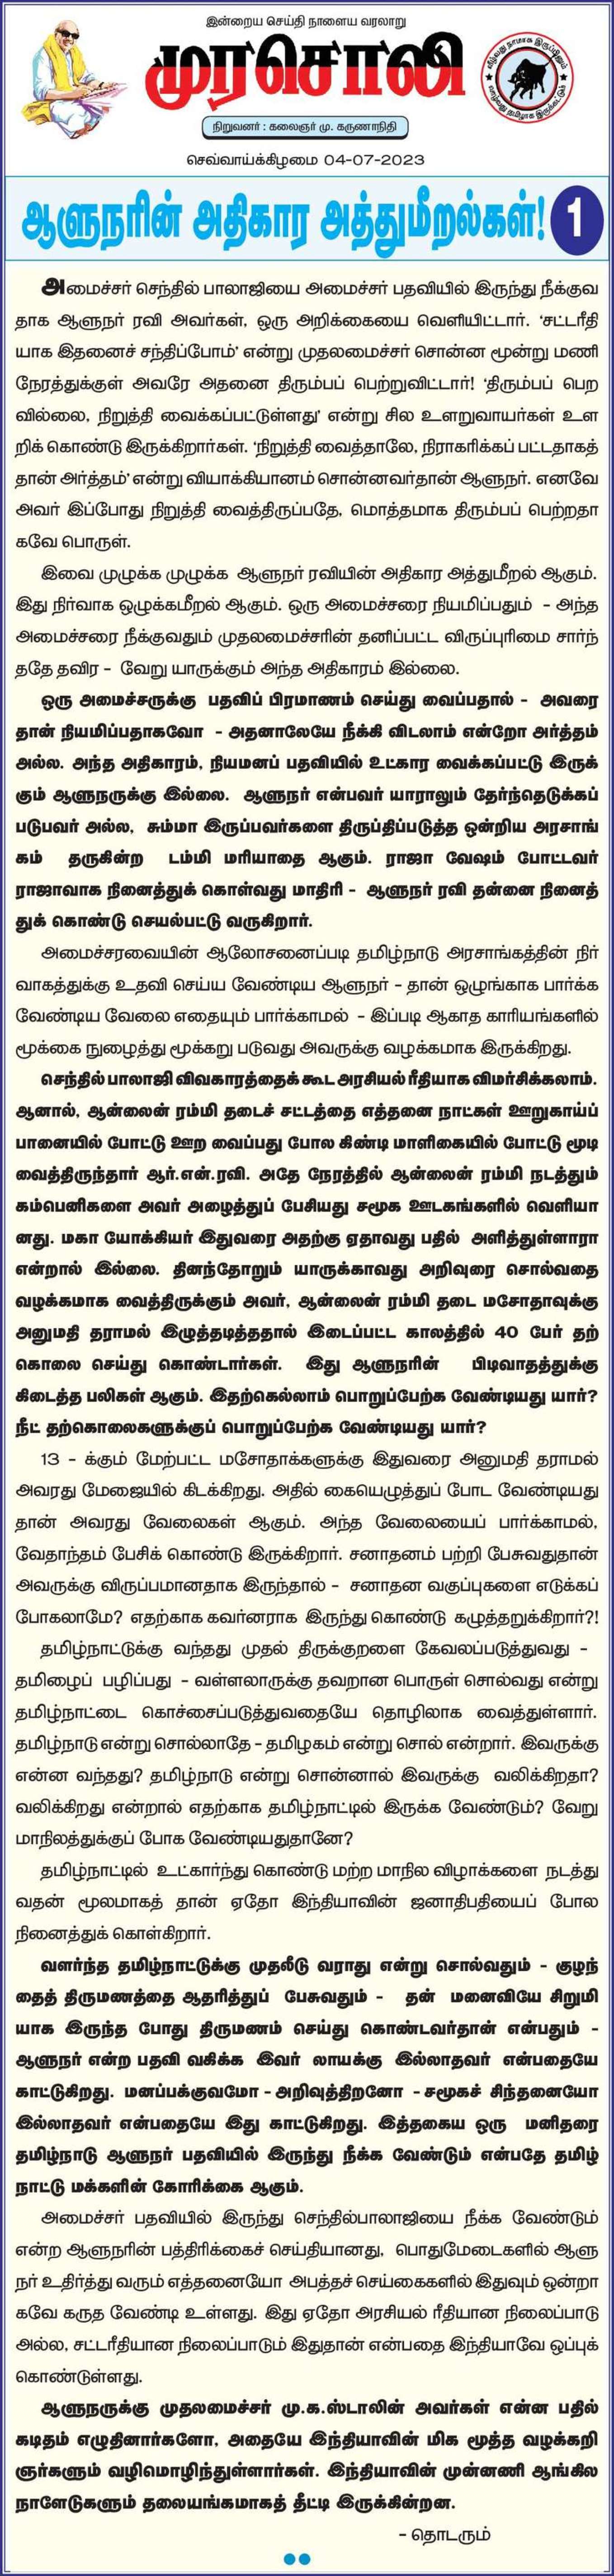 இன்றைய செய்தி நாளைய வரலாறு
முரசொலி
நிறுவனர் : கலைஞர் மு. கருணாநிதி
வீழ்வது நாமாக இருப்பினும்
வாழ்வது தமிழாக இருக்கட்டும்
செவ்வாய்க்கிழமை 04-07-2023
ஆளுநரின் அதிகார அத்துமீறல்கள்! 1
அமைச்சர் செந்தில் பாலாஜியை அமைச்சர் பதவியில் இருந்து நீக்குவ
தாக ஆளுநர் ரவி அவர்கள், ஒரு அறிக்கையை வெளியிட்டார். 'சட்டரீதி
யாக இதனைச் சந்திப்போம்' என்று முதலமைச்சர் சொன்ன மூன்று மணி
நேரத்துக்குள் அவரே அதனை திரும்பப் பெற்றுவிட்டார்! 'திரும்பப் பெற
வில்லை, நிறுத்தி வைக்கப்பட்டுள்ளது' என்று சில உளறுவாயர்கள் உள
றிக் கொண்டு இருக்கிறார்கள். 'நிறுத்தி வைத்தாலே, நிராகரிக்கப் பட்டதாகத்
தான் அர்த்தம்' என்று வியாக்கியானம் சொன்னவர்தான் ஆளுநர். எனவே
அவர் இப்போது நிறுத்தி வைத்திருப்பதே, மொத்தமாக திரும்பப் பெற்றதா
கவே பொருள்.
இவை முழுக்க முழுக்க ஆளுநர் ரவியின் அதிகார அத்துமீறல் ஆகும்.
இது நிர்வாக ஒழுக்கமீறல் ஆகும். ஒரு அமைச்சரை நியமிப்பதும் - அந்த
அமைச்சரை நீக்குவதும் முதலமைச்சரின் தனிப்பட்ட விருப்புரிமை சார்ந்
ததே தவிர - வேறு யாருக்கும் அந்த அதிகாரம் இல்லை.
ஒரு அமைச்சருக்கு பதவிப் பிரமாணம் செய்து வைப்பதால் - அவரை
தான் நியமிப்பதாகவோ - அதனாலேயே நீக்கி விடலாம் என்றோ அர்த்தம்
அல்ல. அந்த அதிகாரம், நியமனப் பதவியில் உட்கார வைக்கப்பட்டு இருக்
கும் ஆளுநருக்கு இல்லை. ஆளுநர் என்பவர் யாராலும் தேர்ந்தெடுக்கப்
படுபவர் அல்ல, சும்மா இருப்பவர்களை திருப்திப்படுத்த ஒன்றிய அரசாங்
கம் தருகின்ற டம்மி மரியாதை ஆகும். ராஜா வேஷம் போட்டவர்
ராஜாவாக நினைத்துக் கொள்வது மாதிரி - ஆளுநர் ரவி தன்னை நினைத்
துக் கொண்டு செயல்பட்டு வருகிறார்.
அமைச்சரவையின் ஆலோசனைப்படி தமிழ்நாடு அரசாங்கத்தின் நிர்
வாகத்துக்கு உதவி செய்ய வேண்டிய ஆளுநர் - தான் ஒழுங்காக பார்க்க
வேண்டிய வேலை எதையும் பார்க்காமல் - இப்படி ஆகாத காரியங்களில்
மூக்கை நுழைத்து மூக்கறு படுவது அவருக்கு வழக்கமாக இருக்கிறது.
செந்தில் பாலாஜி விவகாரத்தைக் கூட அரசியல் ரீதியாக விமர்சிக்கலாம்.
ஆனால், ஆன்லைன் ரம்மி தடைச் சட்டத்தை எத்தனை நாட்கள் ஊறுகாய்ப்
பானையில் போட்டு ஊற வைப்பது போல கிண்டி மாளிகையில் போட்டு மூடி
வைத்திருந்தார் ஆர்.என்.ரவி. அதே நேரத்தில் ஆன்லைன் ரம்மி நடத்தும்
கம்பெனிகளை அவர் அழைத்துப் பேசியது சமூக ஊடகங்களில் வெளியா
னது. மகா யோக்கியர் இதுவரை அதற்கு ஏதாவது பதில் அளித்துள்ளாரா
என்றால் இல்லை. தினந்தோறும் யாருக்காவது அறிவுரை சொல்வதை
வழக்கமாக வைத்திருக்கும் அவர், ஆன்லைன் ரம்மி தடை மசோதாவுக்கு
அனுமதி தராமல் இழுத்தடித்ததால் இடைப்பட்ட காலத்தில் 40 பேர் தற்
கொலை செய்து கொண்டார்கள். இது ஆளுநரின் பிடிவாதத்துக்கு
கிடைத்த பலிகள் ஆகும். இதற்கெல்லாம் பொறுப்பேற்க வேண்டியது யார்?
நீட் தற்கொலைகளுக்குப் பொறுப்பேற்க வேண்டியது யார்?
13 - க்கும் மேற்பட்ட மசோதாக்களுக்கு இதுவரை அனுமதி தராமல்
அவரது மேஜையில் கிடக்கிறது. அதில் கையெழுத்துப் போட வேண்டியது
தான் அவரது வேலைகள் ஆகும். அந்த வேலையைப் பார்க்காமல்,
வேதாந்தம் பேசிக் கொண்டு இருக்கிறார். சனாதனம் பற்றி பேசுவதுதான்
அவருக்கு விருப்பமானதாக இருந்தால் - சனாதன வகுப்புகளை எடுக்கப்
போகலாமே? எதற்காக கவர்னராக இருந்து கொண்டு கழுத்தறுக்கிறார்?!
தமிழ்நாட்டுக்கு வந்தது முதல் திருக்குறளை கேவலப்படுத்துவது -
தமிழைப் பழிப்பது - வள்ளலாருக்கு தவறான பொருள் சொல்வது என்று
தமிழ்நாட்டை கொச்சைப்படுத்துவதையே தொழிலாக வைத்துள்ளார்.
தமிழ்நாடு என்று சொல்லாதே - தமிழகம் என்று சொல் என்றார். இவருக்கு
என்ன வந்தது? தமிழ்நாடு என்று சொன்னால் இவருக்கு வலிக்கிறதா?
வலிக்கிறது என்றால் எதற்காக தமிழ்நாட்டில் இருக்க வேண்டும்? வேறு
மாநிலத்துக்குப் போக வேண்டியதுதானே?
தமிழ்நாட்டில் உட்கார்ந்து கொண்டு மற்ற மாநில விழாக்களை நடத்து
வதன் மூலமாகத் தான் ஏதோ இந்தியாவின் ஜனாதிபதியைப் போல
நினைத்துக் கொள்கிறார்.
வளர்ந்த தமிழ்நாட்டுக்கு முதலீடு வராது என்று சொல்வதும் - குழந்
தைத் திருமணத்தை ஆதரித்துப் பேசுவதும் - தன் மனைவியே சிறுமி
யாக இருந்த போது திருமணம் செய்து கொண்டவர்தான் என்பதும் -
ஆளுநர் என்ற பதவி வகிக்க இவர் லாயக்கு இல்லாதவர் என்பதையே
காட்டுகிறது. மனப்பக்குவமோ - அறிவுத்திறனோ - சமூகச் சிந்தனையோ
இல்லாதவர் என்பதையே இது காட்டுகிறது. இத்தகைய ஒரு மனிதரை
தமிழ்நாடு ஆளுநர் பதவியில் இருந்து நீக்க வேண்டும் என்பதே தமிழ்
நாட்டு மக்களின் கோரிக்கை ஆகும்.
அமைச்சர் பதவியில் இருந்து செந்தில்பாலாஜியை நீக்க வேண்டும்
என்ற ஆளுநரின் பத்திரிக்கைச் செய்தியானது, பொதுமேடைகளில் ஆளு
நர் உதிர்த்து வரும் எத்தனையோ அபத்தச் செய்கைகளில் இதுவும் ஒன்றா
கவே கருத வேண்டி உள்ளது. இது ஏதோ அரசியல் ரீதியான நிலைப்பாடு
அல்ல, சட்டரீதியான நிலைப்பாடும் இதுதான் என்பதை இந்தியாவே ஒப்புக்
கொண்டுள்ளது.
ஆளுநருக்கு முதலமைச்சர் மு.க.ஸ்டாலின் அவர்கள் என்ன பதில்
கடிதம் எழுதினார்களோ, அதையே இந்தியாவின் மிக மூத்த வழக்கறி
ஞர்களும் வழிமொழிந்துள்ளார்கள். இந்தியாவின் முன்னணி ஆங்கில
நாளேடுகளும் தலையங்கமாகத் தீட்டி இருக்கின்றன.
- தொடரும்